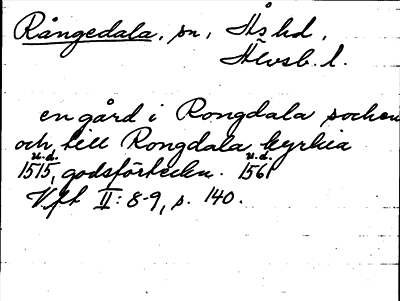 Rångedala, sn, Ås hd,
Älvsb. l.
en gård i Rongdala socken
och till Rongdala kyrkia
u.d. u.d.
1515, godsförteckn. 156
Vft II: 8-9, s. 140.